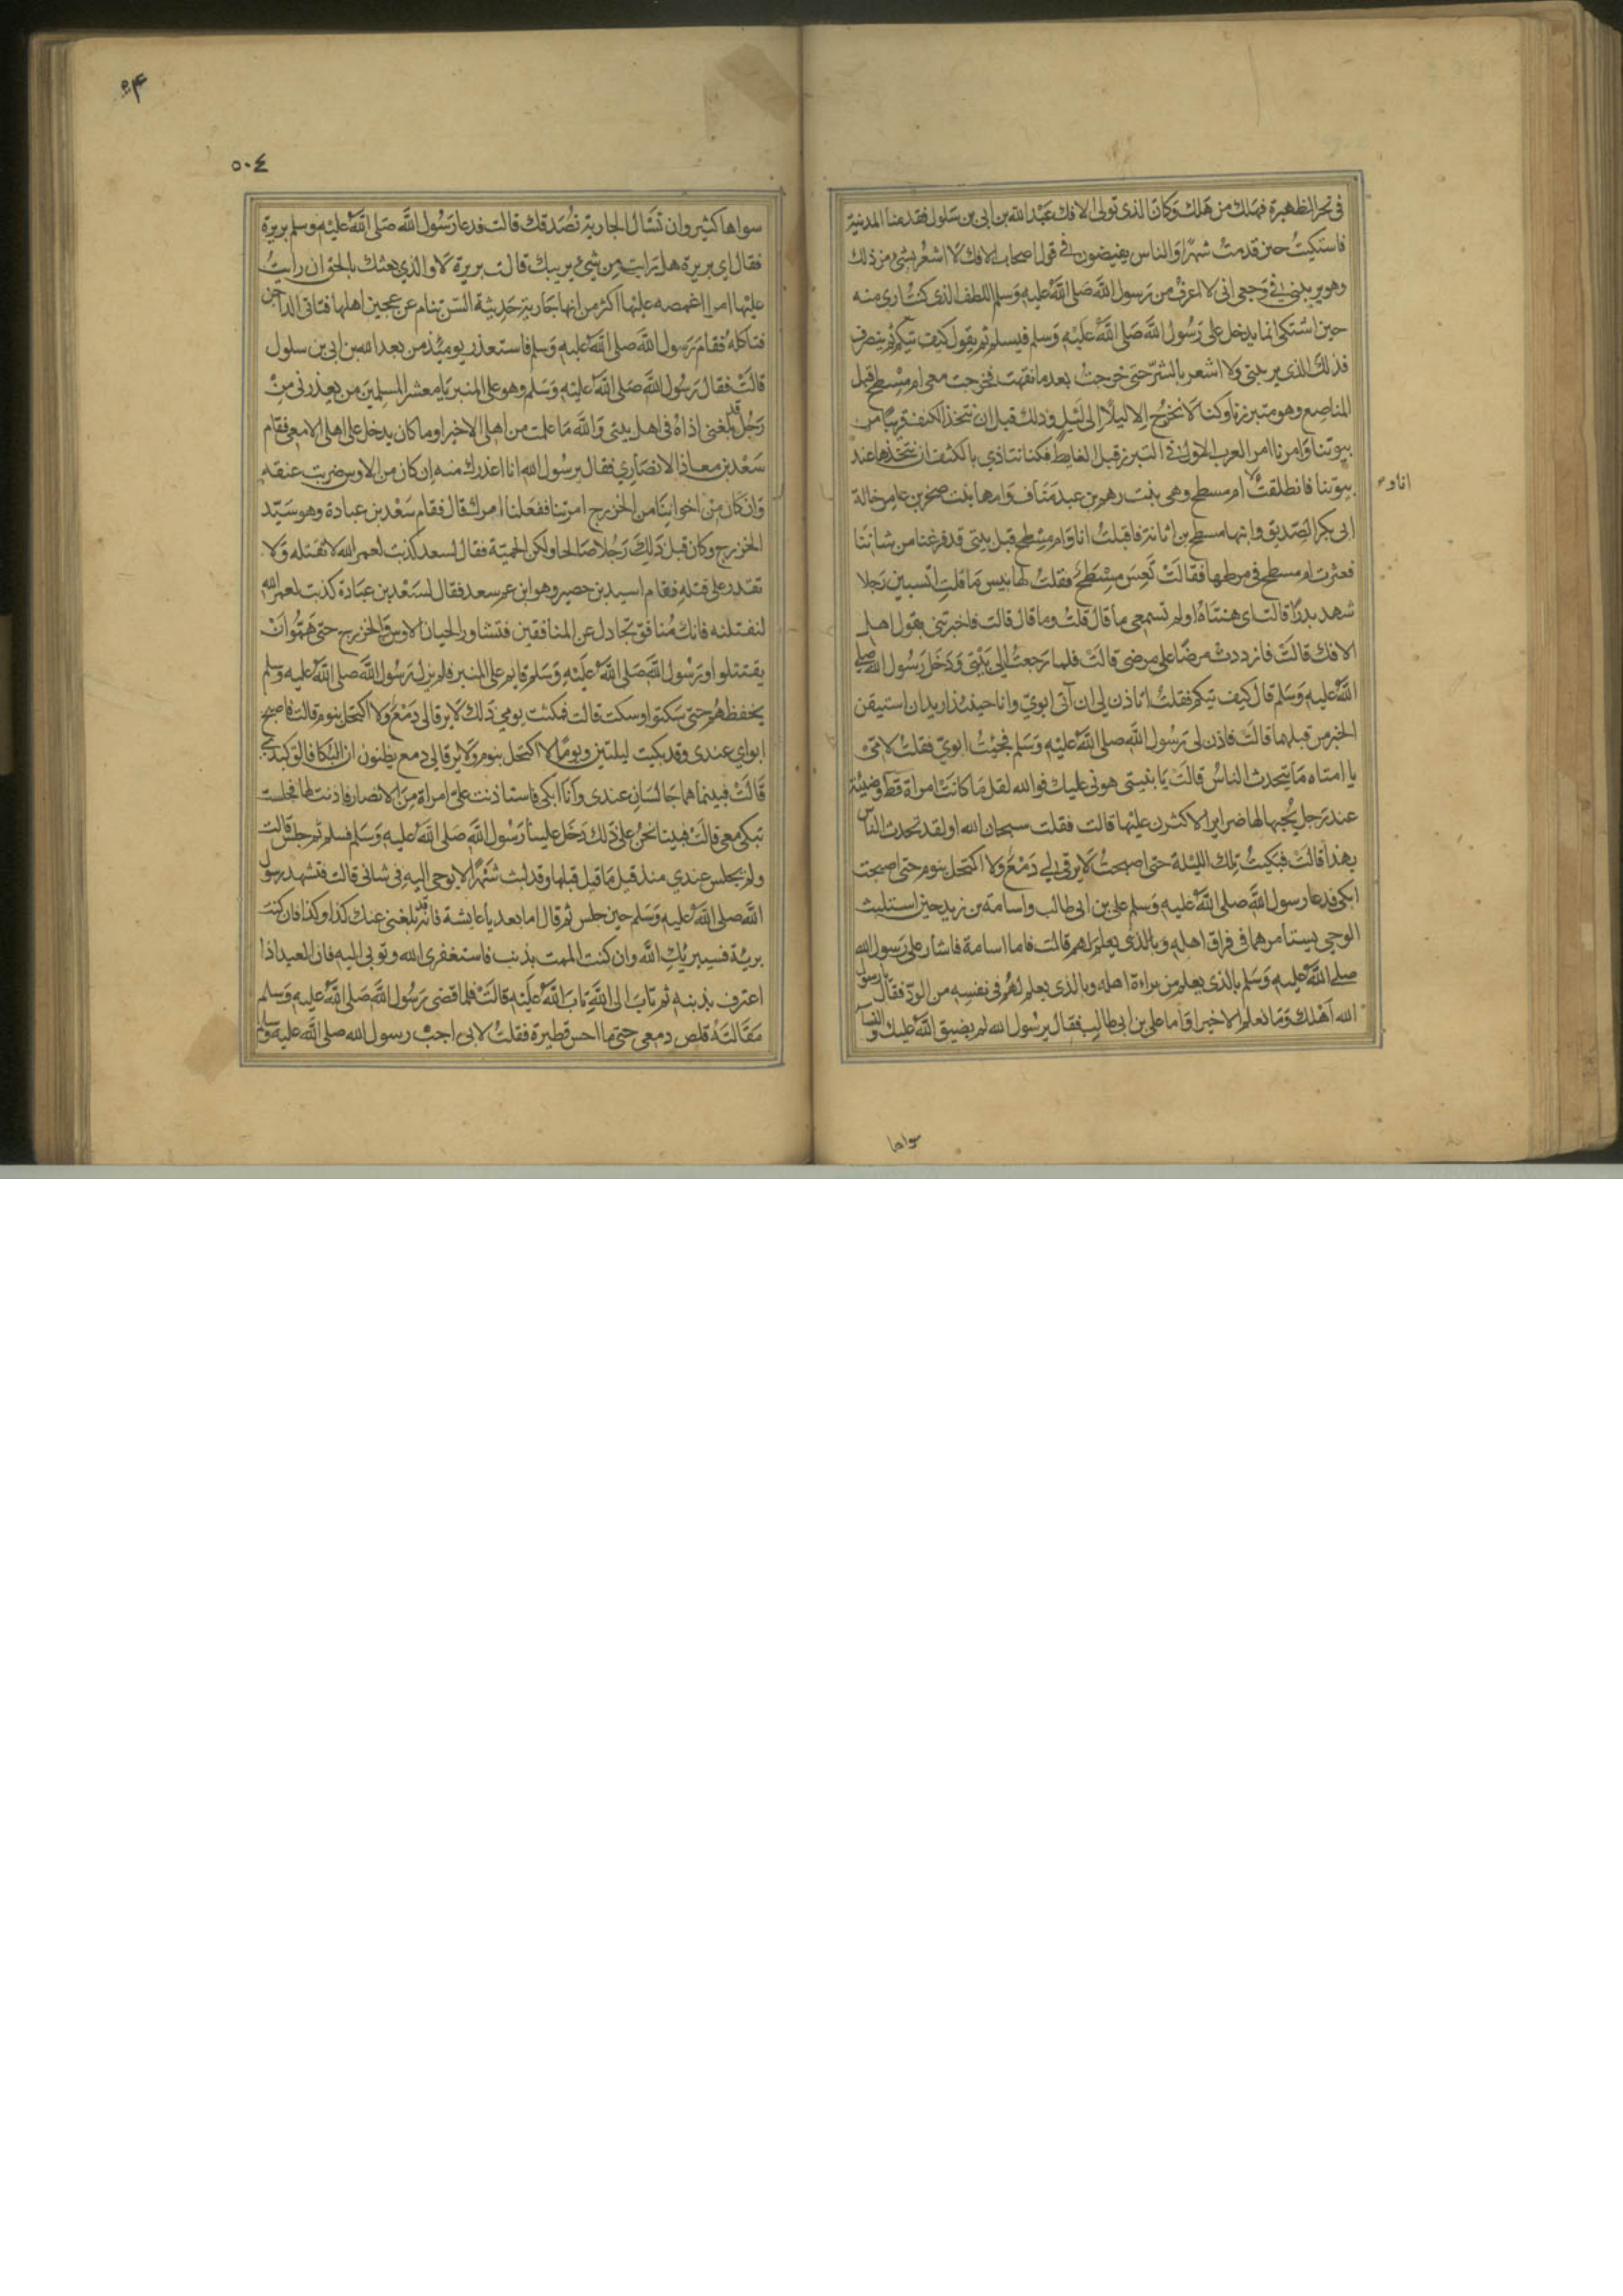 في نحر الظهيرة فهلك من هلك وكان الذى تولى الافك عبد الله بن ابى بن سلول فقدمنا المدينة
فاشتكيتُ حين قدمتُ شهرًا والناس يفيضون في قول اصحاب الافك لا اشعُر بشئ من ذلك
وهو يريبنى في وجعي انى لا اعرفُ من رسول الله صلى الله عليه وسلم اللطف الذى كنتُ ارى منه
حين اشتكى انما يدخل على رسُول الله صلى الله عليه وسلم فيسلم ثم يقول كيف تيكم ثم ينصرف
فذلك الذى يريبنى ولا اشعر بالشرّ حتى خرجتُ بعد ما نقهت فخرجت معى ام مسطح قبل
المناصع وهو متبرزنا وكنا لا نخرج الا ليلًا الى ليل وذلك قبل ان نتخذ الكنف قريبًا من
بيوتنا وامرنا امر العرب الاول في التبرز قبل الغايط فكنا نتاذى بالكنف ان نتخذها عند
بيوتنا فانطلقتُ ام مسطح وهى بنت رهم بن عبد مناف وامها بنت صخر بن عامر خالة
انا و
ابى بكر الصديق وابنها مسطح بن اثاثة فاقبلتُ انا وام مسطح قبل بيتى قد فرغنا من شاننا
فعثرت ام مسطح فى مرطها فقالت تَعِسَ مسطح فقلتُ لها بيس ما قلتِ اتسبين رجلا
شهد بدرًا قالت اى هنتاهُ اولم تسمعى ما قال قلتُ وما قال قالت فاخبرتنى بقول اهل
الافك قالت فازددتُ مرضًا على مرضى قالت فلما رجعتُ الى بيتى ودخل رسُول الله صلى
الله عليه وسلم قال كيف تيكم فقلتُ اتاذن لى ان آتى ابويّ وانا حينئذ اريد ان استيقن
الخبر من قبلهما قالت فاذن لى رسُول الله صلى الله عليه وسلم فجئتُ ابويّ فقلتُ لامّى
يا امتاه ما يتحدث الناسُ قالت يا بنيتى هونى عليك فوالله لقل ما كانت امراة قط وضيئة
عند رجل يحبها لها ضراير الا كثرن عليها قالت فقلت سبحان الله اولقد تحدث الناس
بهذا قالت فبكيتُ تلك الليلة حتى اصبحتُ لا يرقى لى دمعٌ ولا اكتحل بنوم حتى اصبحت
ابكى فدعا رسول الله صلى الله عليه وسلم على بن ابى طالب واسامة بن زيد حين استلبث
الوحي يستامرهما فى فراق اهله وبالذى يعلم لهم قالت فاما اسامة فاشار على رسول الله
صلى الله عليه وسلم بالذى يعلم من براءة اهله وبالذى يعلم لهُم فى نفسه من الودّ فقال يا رسول
الله اهلك وما نعلم الا خيرا واما على بن ابى طالب فقال يرسُول الله لم يضيق الله عليك والنسآء
سواها
۵۴
٥٠٤
سواها كثير وان تسال الجارية تصدقك قالت فدعا رسُول الله صلى الله عليه وسلم بريرة
فقال اى بريرة هل رايت من شيئ يريبك قالت بريرة لا والذي بعثك بالحق ان رايتُ
عليها امرا اغمصه عليها اكثر من انها جارية حديثة السن تنام عن عجين اهلها فتاتى الداجن
فتاكله فقام رسول الله صلى الله عليه وسلم فاستعذر يومئذ من عبد الله بن ابى بن سلول
قالت فقال رسُول الله صلى الله عليه وسلم وهو على المنبر يا معشر المسلمين من يعذرنى من
رجُل قد بلغنى اذاهُ فى اهل بيتى والله ما علمت من اهلى الا خيرا وما كان يدخل على اهلى الا معى فقام
سعد بن معاذ الانصاري فقال يرسُول الله انا اعذرك منه ان كان من الاوس ضربت عنقه
وان كان من اخواننا من الخزرج امرتنا ففعلنا امرك قال فقام سعد بن عبادة وهو سيّد
الخزرج وكان قبل ذلك رجُلا صالحا ولكن الحميّة فقال لسعد كذبت لعمر الله لا تقتله ولا
تقدر على قتله فقام اسيد بن حصير وهو ابن عم سعد فقال لسعد بن عبادة كذبت لعمر الله
لنقتلنه فانك مُنافق تجادل عن المنافقين فتشاور الحيان الاوس والخزرج حتى همّوا ان
يقتتلوا ورسُول الله صلى الله عليه وسلم قايم على المنبر فلم يزل رسُول الله صلى الله عليه وسلم
يخفظهُم حتى سكتوا وسكت قالت فمكثت يومي ذلك لا يرقا لى دمعٌ ولا اكتحل بنوم قالت فاصبح
ابواي عندى وقد بكيت ليلتين ويومًا لا اكتحل بنوم ولا يرقا لى دمع يظنون ان البكا فالق كبدى
قالت فبينما هما جالسان عندى وانا ابكى فاستاذنت علىّ امراة من الانصار فاذنت لها فجلست
تبكى معى قالت فبينا نحنُ على ذلك دخل علينا رسُول الله صلى الله عليه وسلم فسلم ثم جلس قالت
ولم يجلس عندي منذ قيل ما قيل قبلها وقد لبث شهرًا لا يوحى اليه فى شانى قالت فتشهد رسول
الله صلى الله عليه وسلم حين جلس ثم قال اما بعد يا عايشة فانه قد بلغنى عنك كذا وكذا فان كنت
بريّة فسيبريك الله وان كنت الممت بذنب فاستغفرى الله وتوبى اليه فان العبد اذا
اعترف بذنبه ثم تاب الى الله تاب الله عليه قالت فلما قضى رسُول الله صلى الله عليه وسلم
مقالته قلص دمعى حتى ما احس قطيرة فقلتُ لابى اجبْ رسول الله صلى الله عليه وسلم